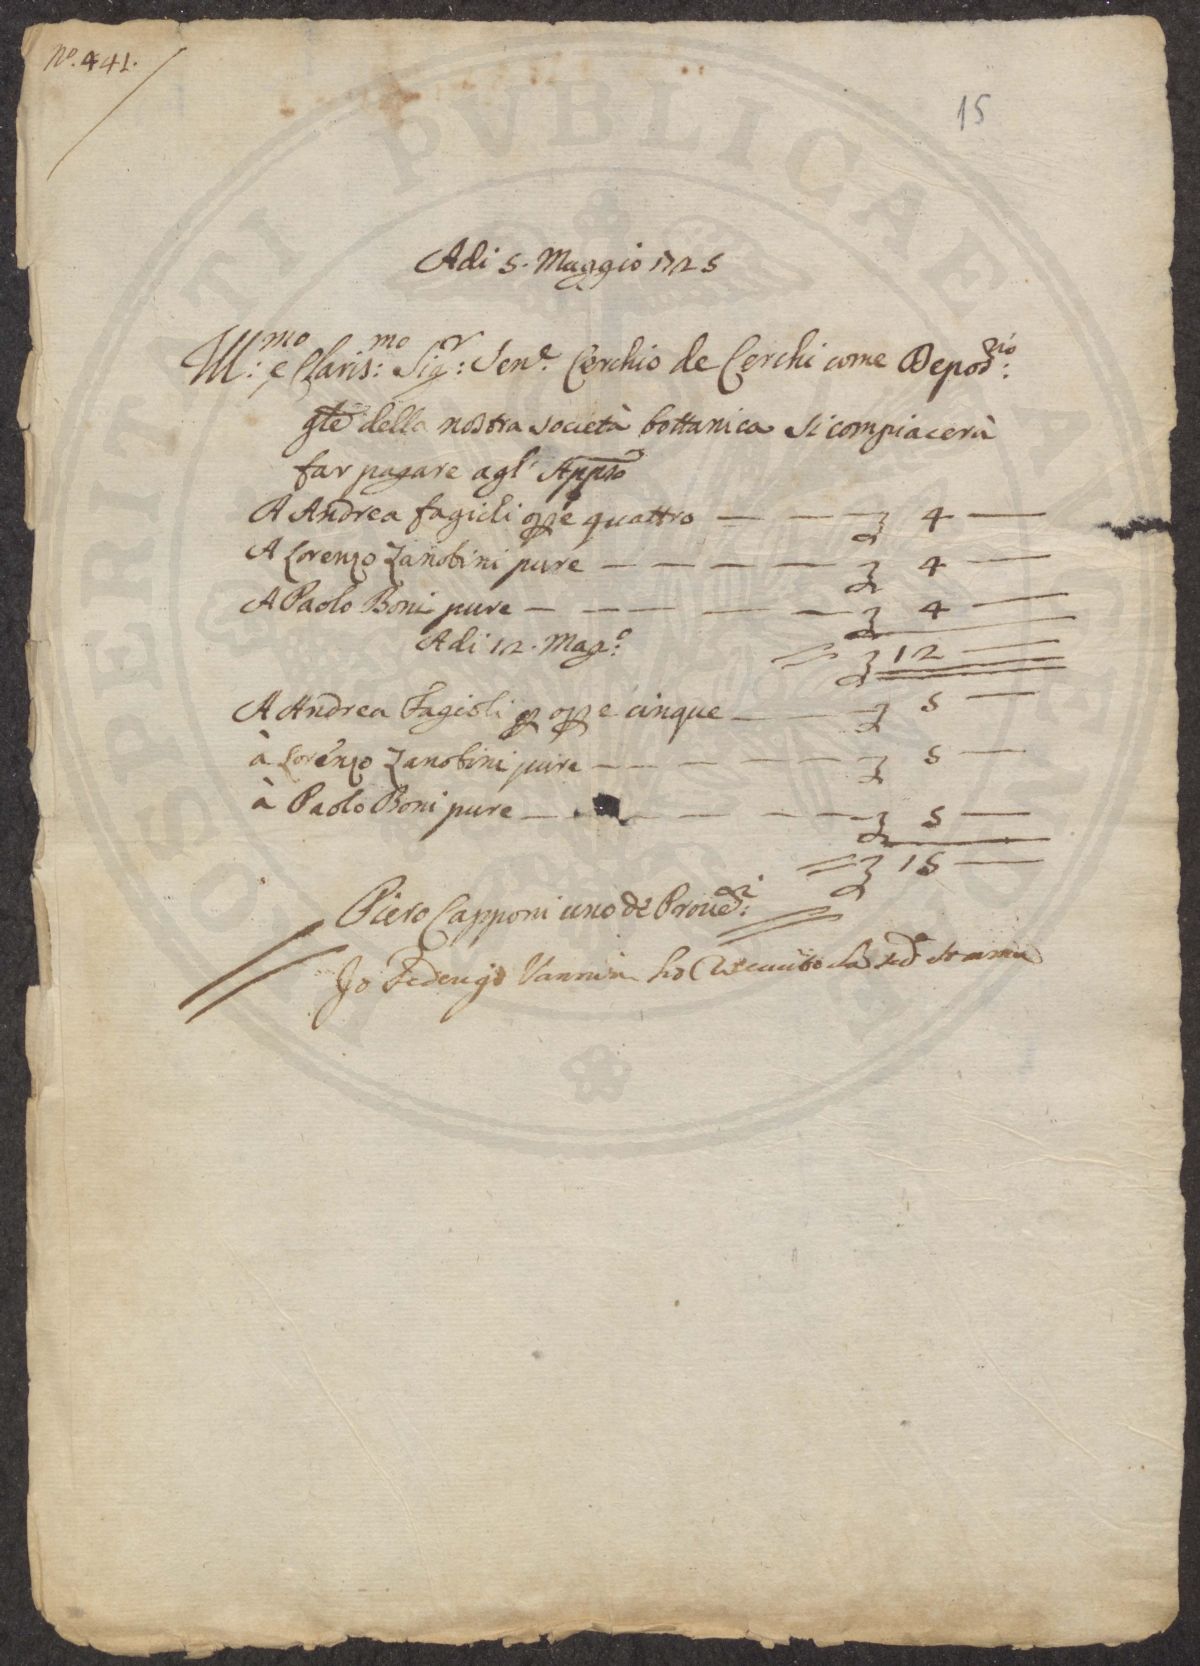 Nº. 441.
15
Adi 5. Maggio 1725
Ill:mo e Claris:mo Sig:r Sen.e Cerchio de Cerchi come Depos:rio
gle della nostra società bottanica si compiacerà
far pagare agl' Appio
A Andrea fagioli opp e quattro — — — 4 —
A Lorenzo Zanobini pure — — — — — 4 —
A Paolo Boni pure — — — — — 4 —
Adi 12. Mag:o = 12 —
A Andrea Fagioli p opp e cinque — — — 5 —
à Lorenzo Zanobini pure — — — — — 5 —
à Paolo Boni pure — — — — — 5 —
= 15 —
Piero Capponi uno de Proued:i
Io Federigo Vannini ho Riceuuto la sud.a somma
PVBLICAE VTILITATI